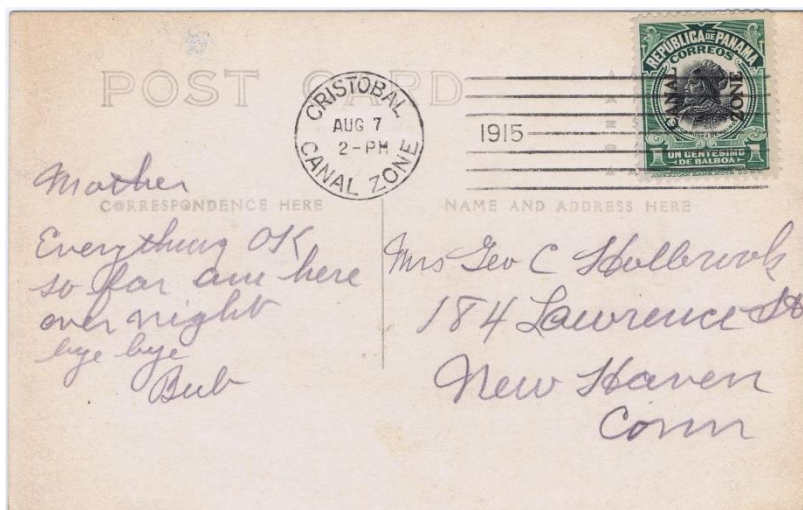 POST CARD
CRISTOBAL
AUG 7
2-PM
CANAL ZONE
1915
REPUBLICA DE PANAMA
CORREOS
CANAL ZONE
1 UN CENTESIMO 1
DE BALBOA
CORRESPONDENCE HERE
NAME AND ADDRESS HERE
Mother
Everything OK
so far am here
over night
bye bye
Bub
Mrs Geo C Holbrook
184 Lawrence St
New Haven
Conn